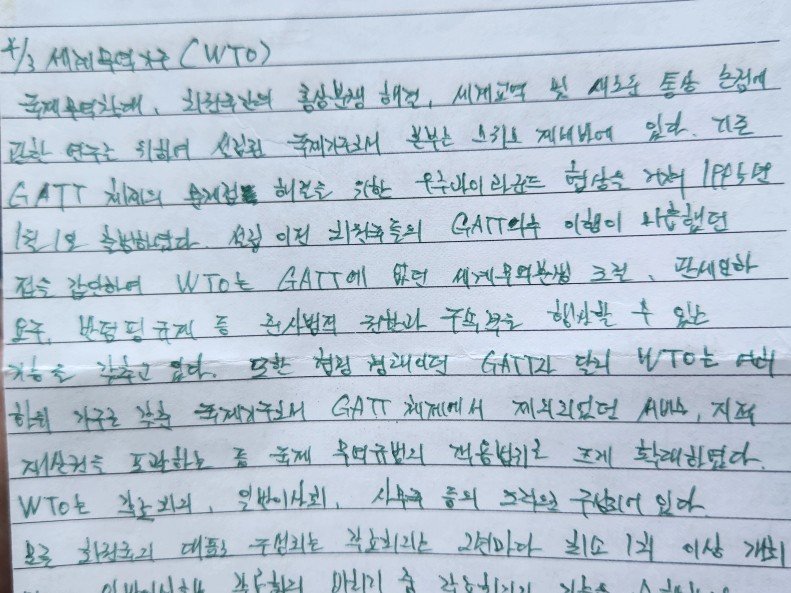 4/3 세계무역기구(WTO)
국제무역확대, 회원국간의 통상분쟁 해결, 세계교역 및 새로운 통상 논점에
관한 연구를 위하여 설립된 국제기구로서 본부는 스위스 제네바에 있다. 기존
GATT 체제의 문제점 해결을 위한 우루과이라운드 협상을 거쳐 1995년
1월 1일 출범하였다. 설립 이전 회원국들의 GATT의무 이행이 미흡했던
점을 감안하여 WTO는 GATT에 없던 세계무역분쟁 조정, 관세인하
요구, 반덤핑규제 등 준사법적 권한과 구속력을 행사할 수 있는
기능을 갖추고 있다. 또한 협정 형태이던 GATT와 달리 WTO는
하위 기구를 갖춘 국제기구로서 GATT 체제에서 제외되었던 서비스, 지적
재산권을 포괄하는 등 국제 무역규범의 적용범위를 크게 확대하였다.
WTO는 각료회의, 일반이사회, 사무국 등의 조직으로 구성되어 있다.
모든 회원국의 대표로 구성되는 각료회의는 2년마다 최소 1회 이상 개최